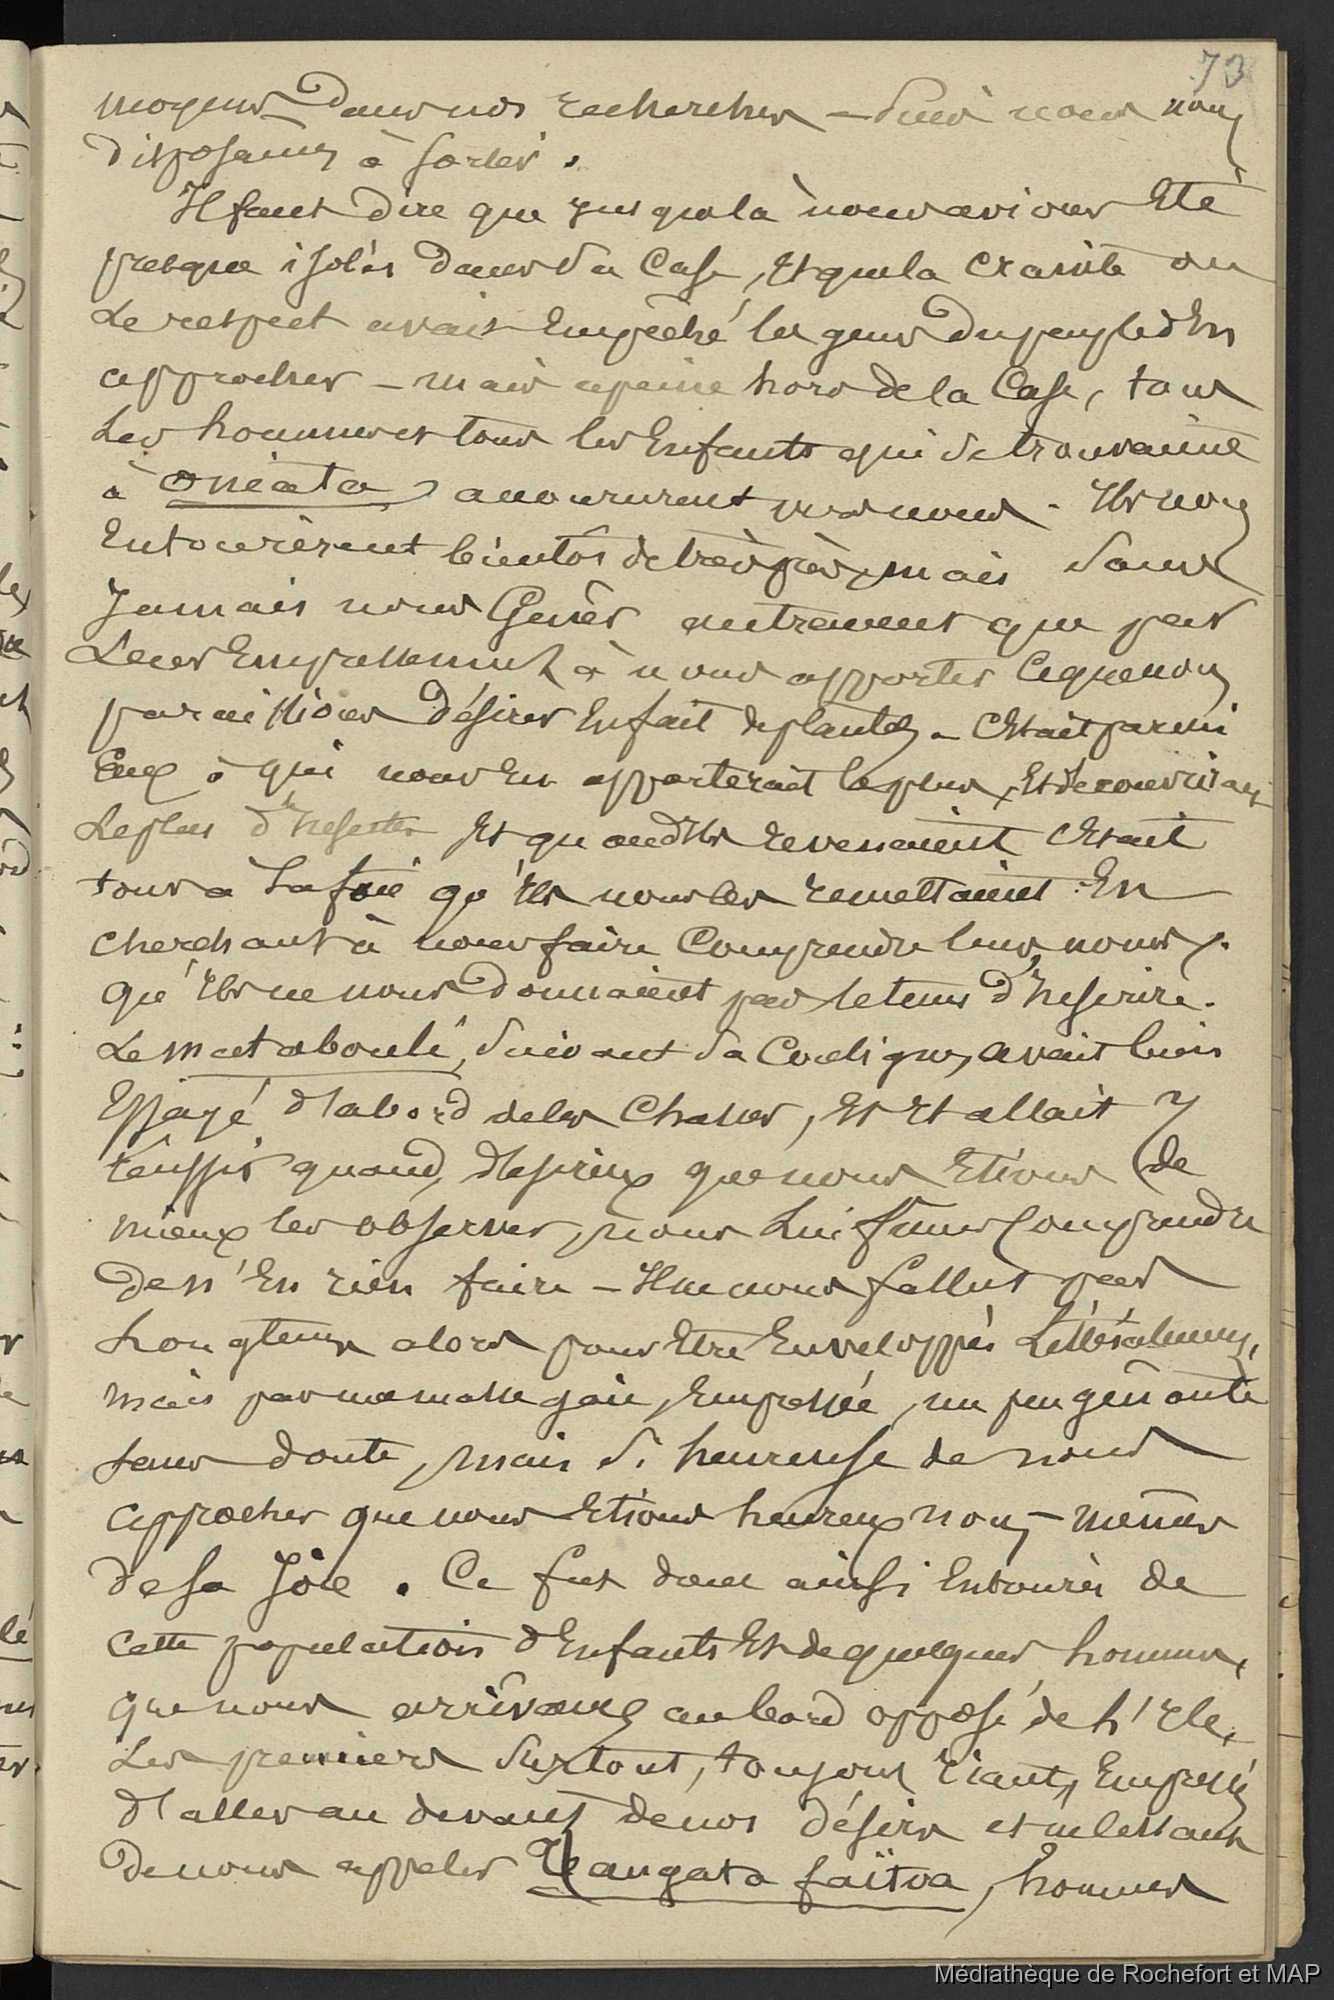 73
moyens dans nos recherches – puis nous nous
disposames à sortir.
Il faut dire que jusque là nous avions Eté
presque isolés dans Sa Case, Et que la crainte ou
Le respect avait Empêché les gens du peuple d'En
approcher – mais a peine hors de la Case, tous
Les hommes et tous les Enfants qui se trouvaient
à Onéata, accoururent vers nous. Ils nous
Entourèrent bientôt de très près, mais Sans
Jamais nous Gêner autrement que par
Leur Empressement à nous apporter ce que nous
paraissions désirer En fait de plantes. – C'Etait parmi
Eux à qui nous En apporterait le plus, Et découvrirait
Le plus d'insectes Et quand Ils revenaient C'Etait
tous à La fois qu'Ils nous les remettaient En
cherchant à nous faire Comprendre leurs noms,
qu'Ils ne nous donnaient pas le tems d'Inscrire.
Le mataboulé, Suivant Sa Consigne, avait bien
Essayé d'abord de les Chasser, Et Il allait y
réussir quand, désireux que nous Etions de
mieux les observer, nous Lui fimes Comprendre
de n'En rien faire – Il ne nous fallut pas
Longtems alors pour Etre Enveloppés Littéralement,
mais par une masse gaie, Empressée, un peu gênante
sans doute, mais Si heureuse de nous
approcher que nous Etions heureux nous-mêmes
de sa Joie. Ce fut donc ainsi Entourés de
cette population d'Enfants Et de quelques hommes,
que nous arrivames au bord opposé de L'Ile,
Les premiers Surtout, toujours riants, Empressés
d'aller au devant de nos désirs et ne cessant
de nous appeler Tangata faïtoa, hommes
Médiathèque de Rochefort et MAP